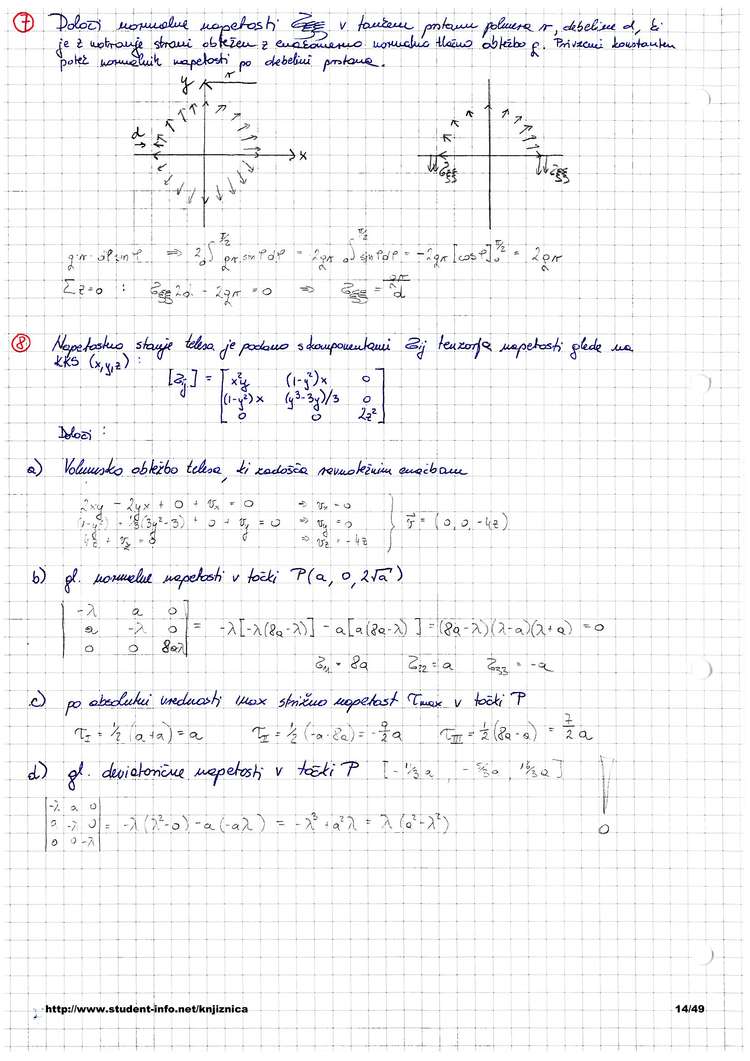 7 Določi normalne napetosti v tankem prstanu polmera r, debeline d, ki
je z notranje strani obtežen z enakomerno normalno tlačno obtežbo q. Privzemi konstanten
potek normalnih napetosti po debelini prstana.
y r
d
x
q r dφ sinφ ⇒ 2∫₀^{π/2} q r sinφ dφ = 2qr ∫₀^{π/2} sinφ dφ = -2qr [cosφ]₀^{π/2} = 2qr
Σz=0 : 2d - 2qr = 0 ⇒ = qr/d
8 Napetostno stanje telesa je podano s komponentami σij tenzorja napetosti glede na
KKS (x,y,z) :
[σij] = [ x²y (1-y²)x 0
(1-y²)x (y³-3y)/3 0
0 0 2z² ]
Določi :
a) Volumsko obtežbo telesa, ki zadošča ravnotežnim enačbam
2xy - 2yx + 0 + vx = 0 ⇒ vx = 0
(1-y²) + ⅓(3y²-3) + 0 + vy = 0 ⇒ vy = 0 v⃗ = (0, 0, -4z)
4z + vz = 0 ⇒ vz = -4z
b) gl. normalne napetosti v točki P(a, 0, 2√a)
| -λ a 0 |
| a -λ 0 | = -λ[-λ(8a-λ)] - a[a(8a-λ)] = (8a-λ)(λ-a)(λ+a) = 0
| 0 0 8a-λ |
σ11 = 8a σ22 = a σ33 = -a
c) po absolutni vrednosti max strižno napetost τmax v točki P
τI = ½(a+a) = a τII = ½(-a-8a) = -9/2 a τIII = ½(8a-a) = 7/2 a
d) gl. deviatorične napetosti v točki P [-11/3 a, -5/3 a 16/3 a]
| -λ a 0 |
| a -λ 0 | = -λ(λ²-0) - a(-aλ) = -λ³ + a²λ = λ(a²-λ²)
| 0 0 -λ |
0
http://www.student-info.net/knjiznica 14/49